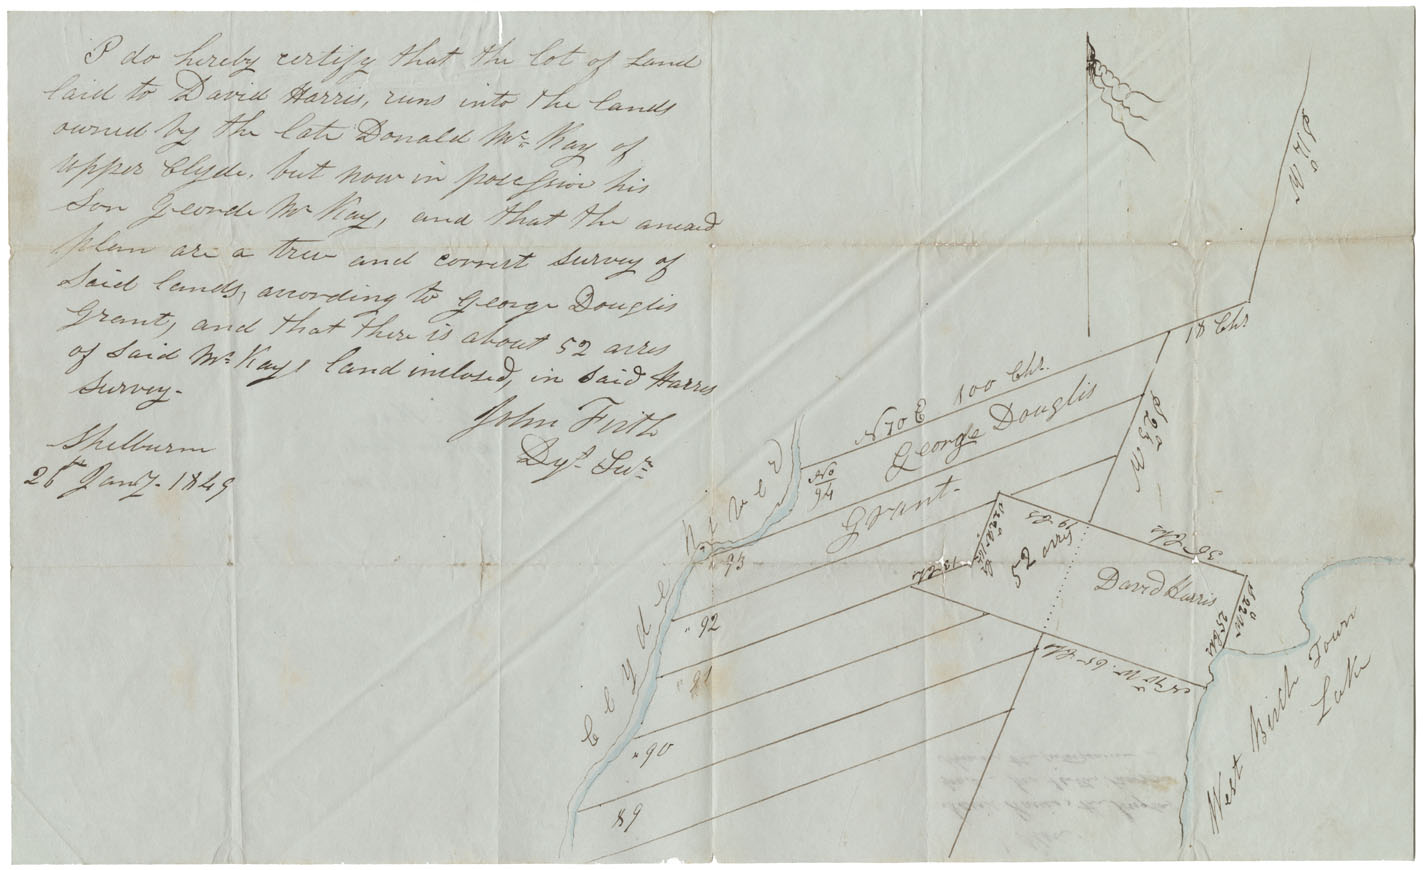 I do hereby certify that the lot of Land
laid to David Harris, runs into the lands
owned by the late Donald Mc Kay of
upper Clyde, but now in possession his
Son George Mc Kay, and that the anexed
plan are a true and correct survey of
Said lands, according to George Douglis
Grant, and that there is about 52 acres
of Said Mc Kays land inclosed, in Said Harris
Survey-
John Firth
Dyt. Sur.
Shelburn
26th Jany. 1849
S 12° W
18 Chs
N 70 E 100 Chs.
George Douglis
Grant-
No 94
93
" 92
" 91
" 90
89
Clyde River
S 22° W
19-25
36-Chs
52 acres
David Harris
13-Chs
S 22° W
25 Chs
N 70° W. 65-Chs
West Birch Town
Lake